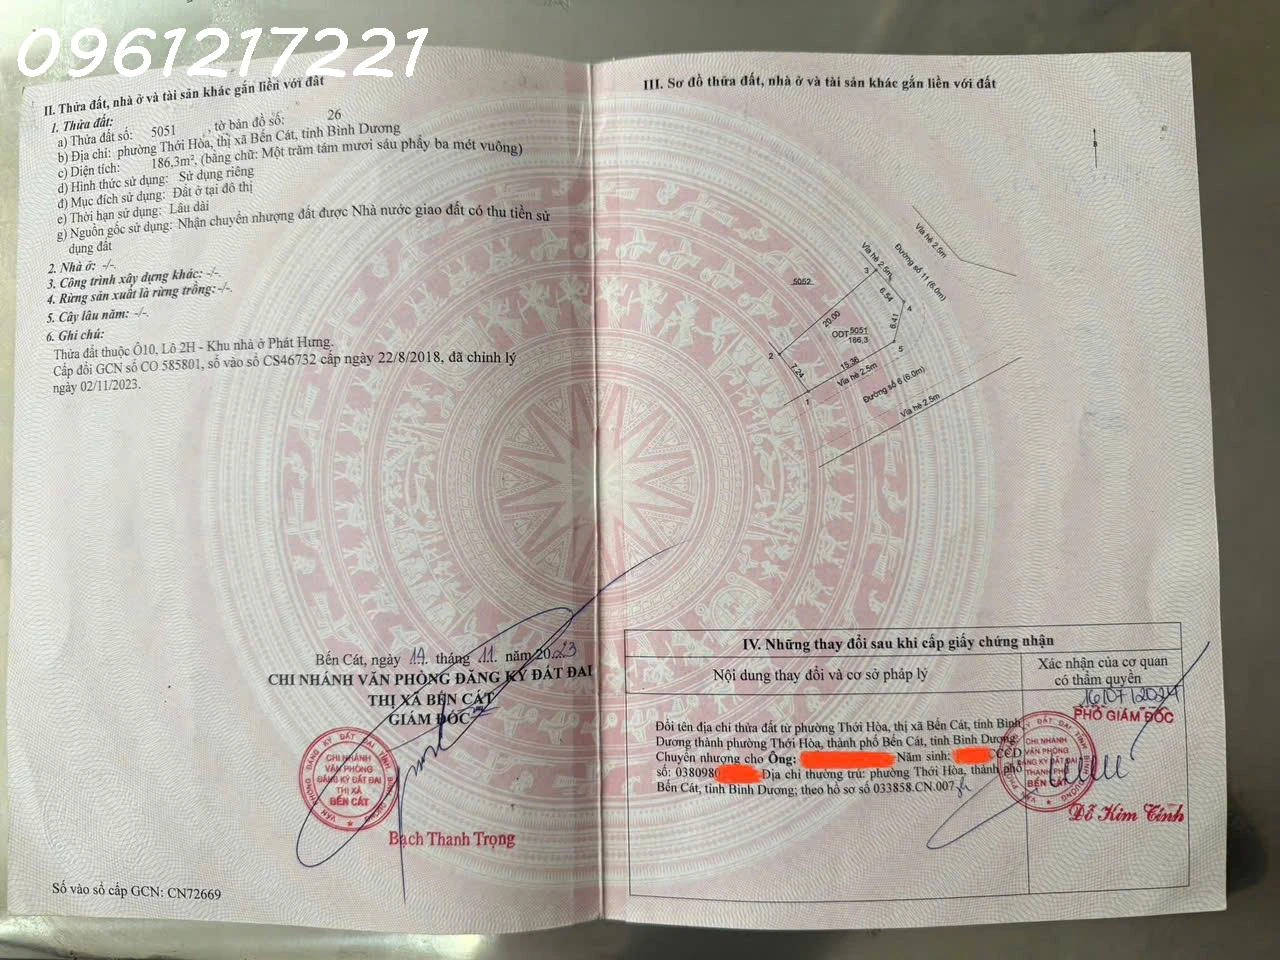 0961217221
II. Thửa đất, nhà ở và tài sản khác gắn liền với đất
1. Thửa đất:
a) Thửa đất số: 5051 , tờ bản đồ số: 26
b) Địa chỉ: phường Thới Hòa, thị xã Bến Cát, tỉnh Bình Dương
c) Diện tích: 186,3m², (bằng chữ: Một trăm tám mươi sáu phẩy ba mét vuông)
d) Hình thức sử dụng: Sử dụng riêng
đ) Mục đích sử dụng: Đất ở tại đô thị
e) Thời hạn sử dụng: Lâu dài
g) Nguồn gốc sử dụng: Nhận chuyển nhượng đất được Nhà nước giao đất có thu tiền sử
dụng đất
2. Nhà ở: -/-.
3. Công trình xây dựng khác: -/-.
4. Rừng sản xuất là rừng trồng: -/-.
5. Cây lâu năm: -/-.
6. Ghi chú:
Thửa đất thuộc Ô10, Lô 2H - Khu nhà ở Phát Hưng.
Cấp đổi GCN số CO 585801, số vào sổ CS46732 cấp ngày 22/8/2018, đã chỉnh lý
ngày 02/11/2023.
Bến Cát, ngày 17 tháng 11 năm 2023
CHI NHÁNH VĂN PHÒNG ĐĂNG KÝ ĐẤT ĐAI
THỊ XÃ BẾN CÁT
GIÁM ĐỐC
VĂN PHÒNG ĐĂNG KÝ ĐẤT ĐAI TỈNH BÌNH DƯƠNG
CHI NHÁNH
VĂN PHÒNG
ĐĂNG KÝ ĐẤT ĐAI
THỊ XÃ
BẾN CÁT
Bạch Thanh Trọng
Số vào sổ cấp GCN: CN72669
III. Sơ đồ thửa đất, nhà ở và tài sản khác gắn liền với đất
B
Vỉa hè 2.5m
Đường số 11 (6.0m)
Vỉa hè 2.5m
5052
3
6.54
4
20.00
6.41
ODT 5051
186,3
5
2
7.24
15.36
1
Vỉa hè 2.5m
Đường số 6 (6.0m)
Vỉa hè 2.5m
IV. Những thay đổi sau khi cấp giấy chứng nhận
Nội dung thay đổi và cơ sở pháp lý
Xác nhận của cơ quan
có thẩm quyền
16/07/2024
PHÓ GIÁM ĐỐC
Đổi tên địa chỉ thửa đất từ phường Thới Hòa, thị xã Bến Cát, tỉnh Bình
Dương thành phường Thới Hòa, thành phố Bến Cát, tỉnh Bình Dương;
Chuyển nhượng cho Ông: Năm sinh: CCCD
số: 0380980 Địa chỉ thường trú: phường Thới Hòa, thành phố
Bến Cát, tỉnh Bình Dương; theo hồ sơ số 033858.CN.007
CHI NHÁNH
VĂN PHÒNG
ĐĂNG KÝ ĐẤT ĐAI
THÀNH PHỐ
BẾN CÁT
Đỗ Kim Tính